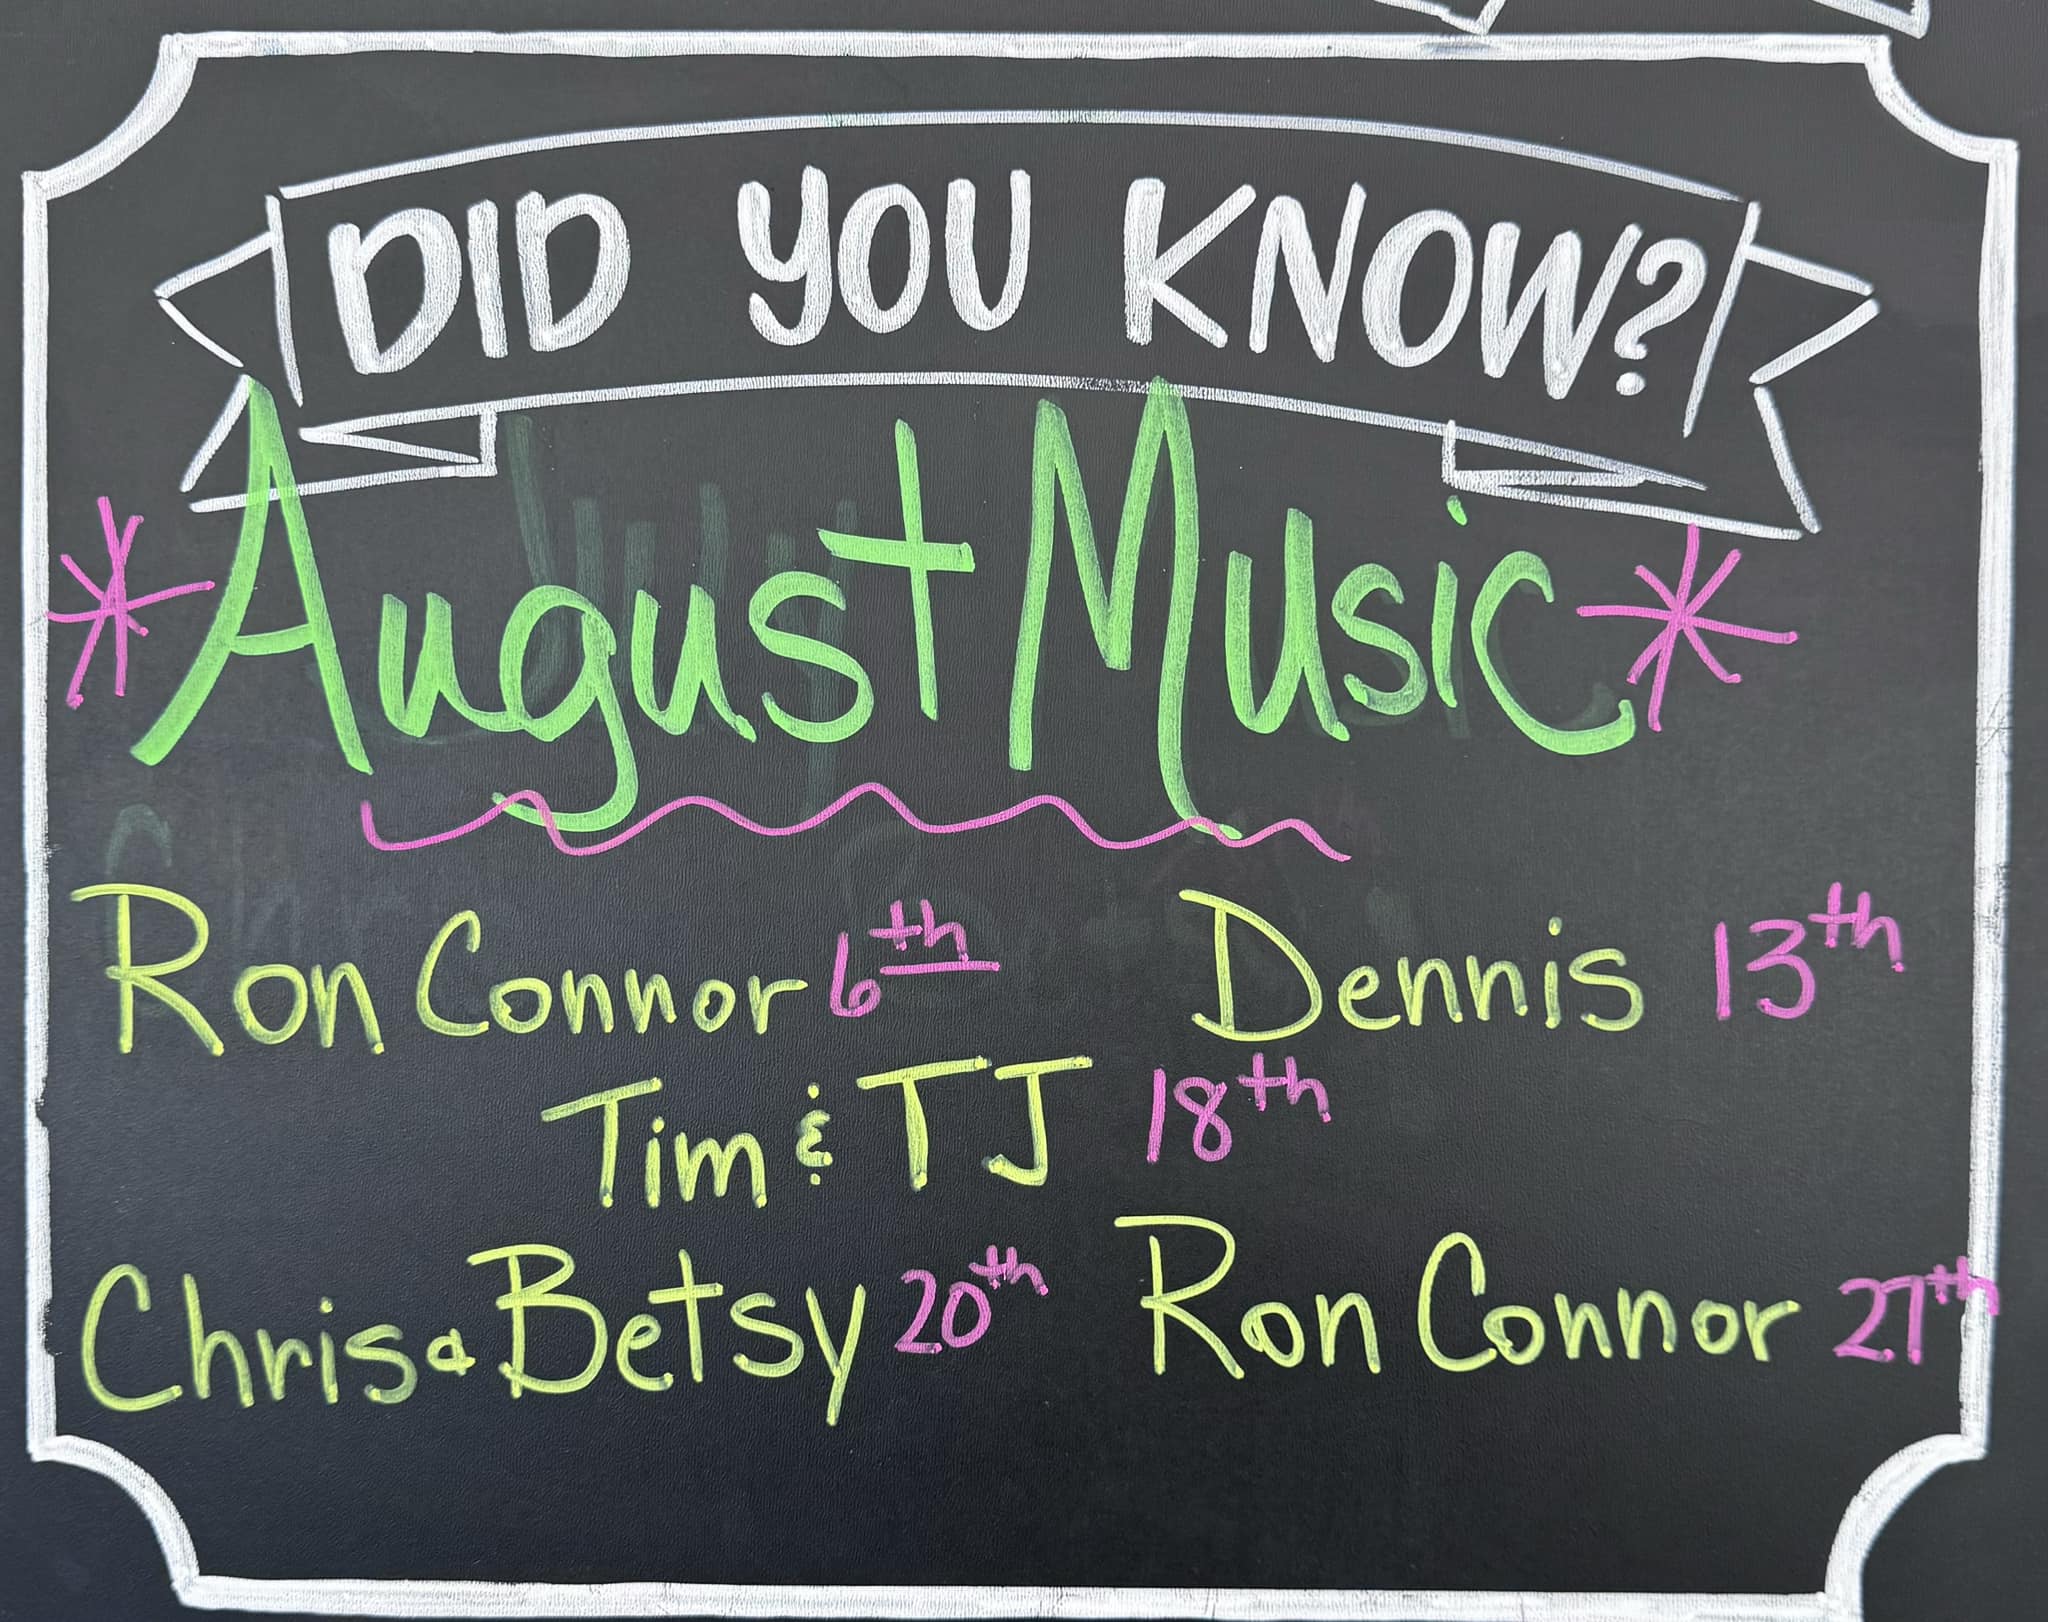 DID YOU KNOW?
*August Music*
Ron Connor 6th Dennis 13th
Tim & TJ 18th
Chris & Betsy 20th Ron Connor 27th